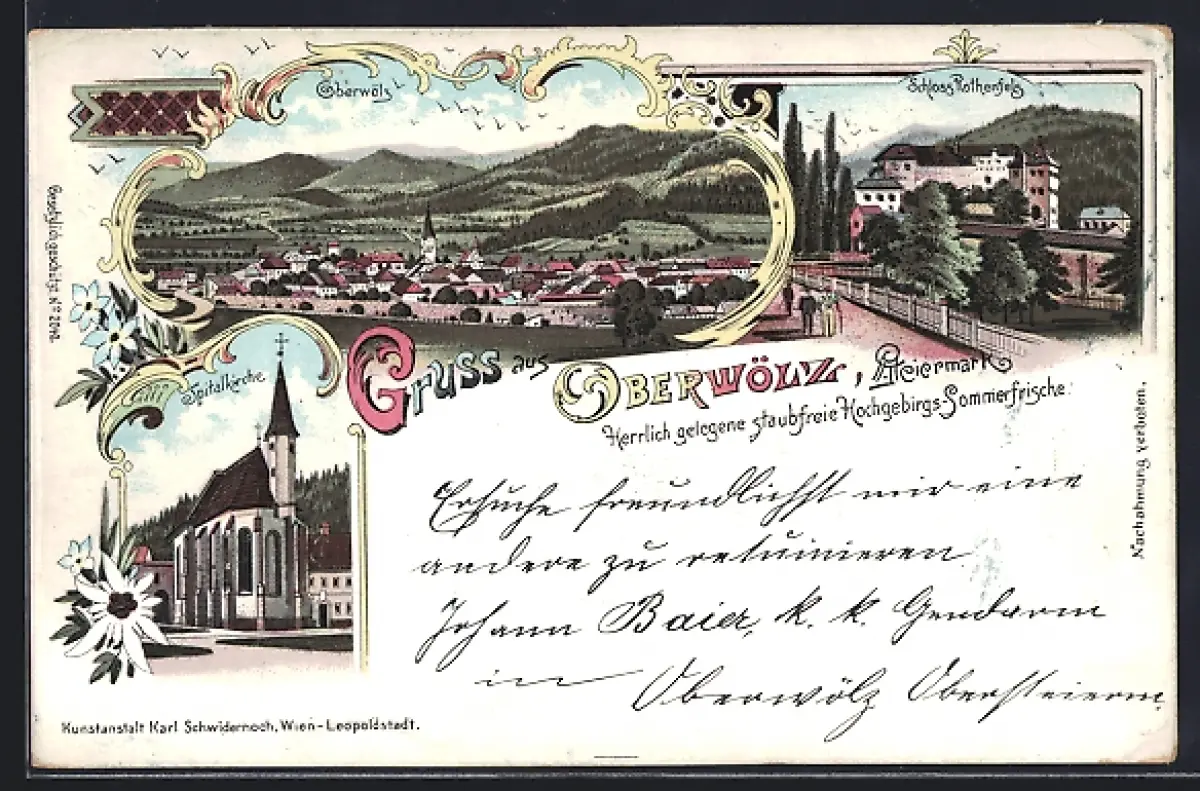 Oberwölz
Schloss Rothenfels
Gesetzlich geschützt No
Spitalkirche
Gruss aus Oberwölz, Steiermark
Herrlich gelegene staubfreie Hochgebirgs Sommerfrische.
Nachahmung verboten.
Ersuche freundlichst mir eine
andere zu retuinieren.
Johann Baier, k. k. Gendarm
in Oberwölz Obersteierm.
Kunstanstalt Karl Schwidernoch, Wien-Leopoldstadt.